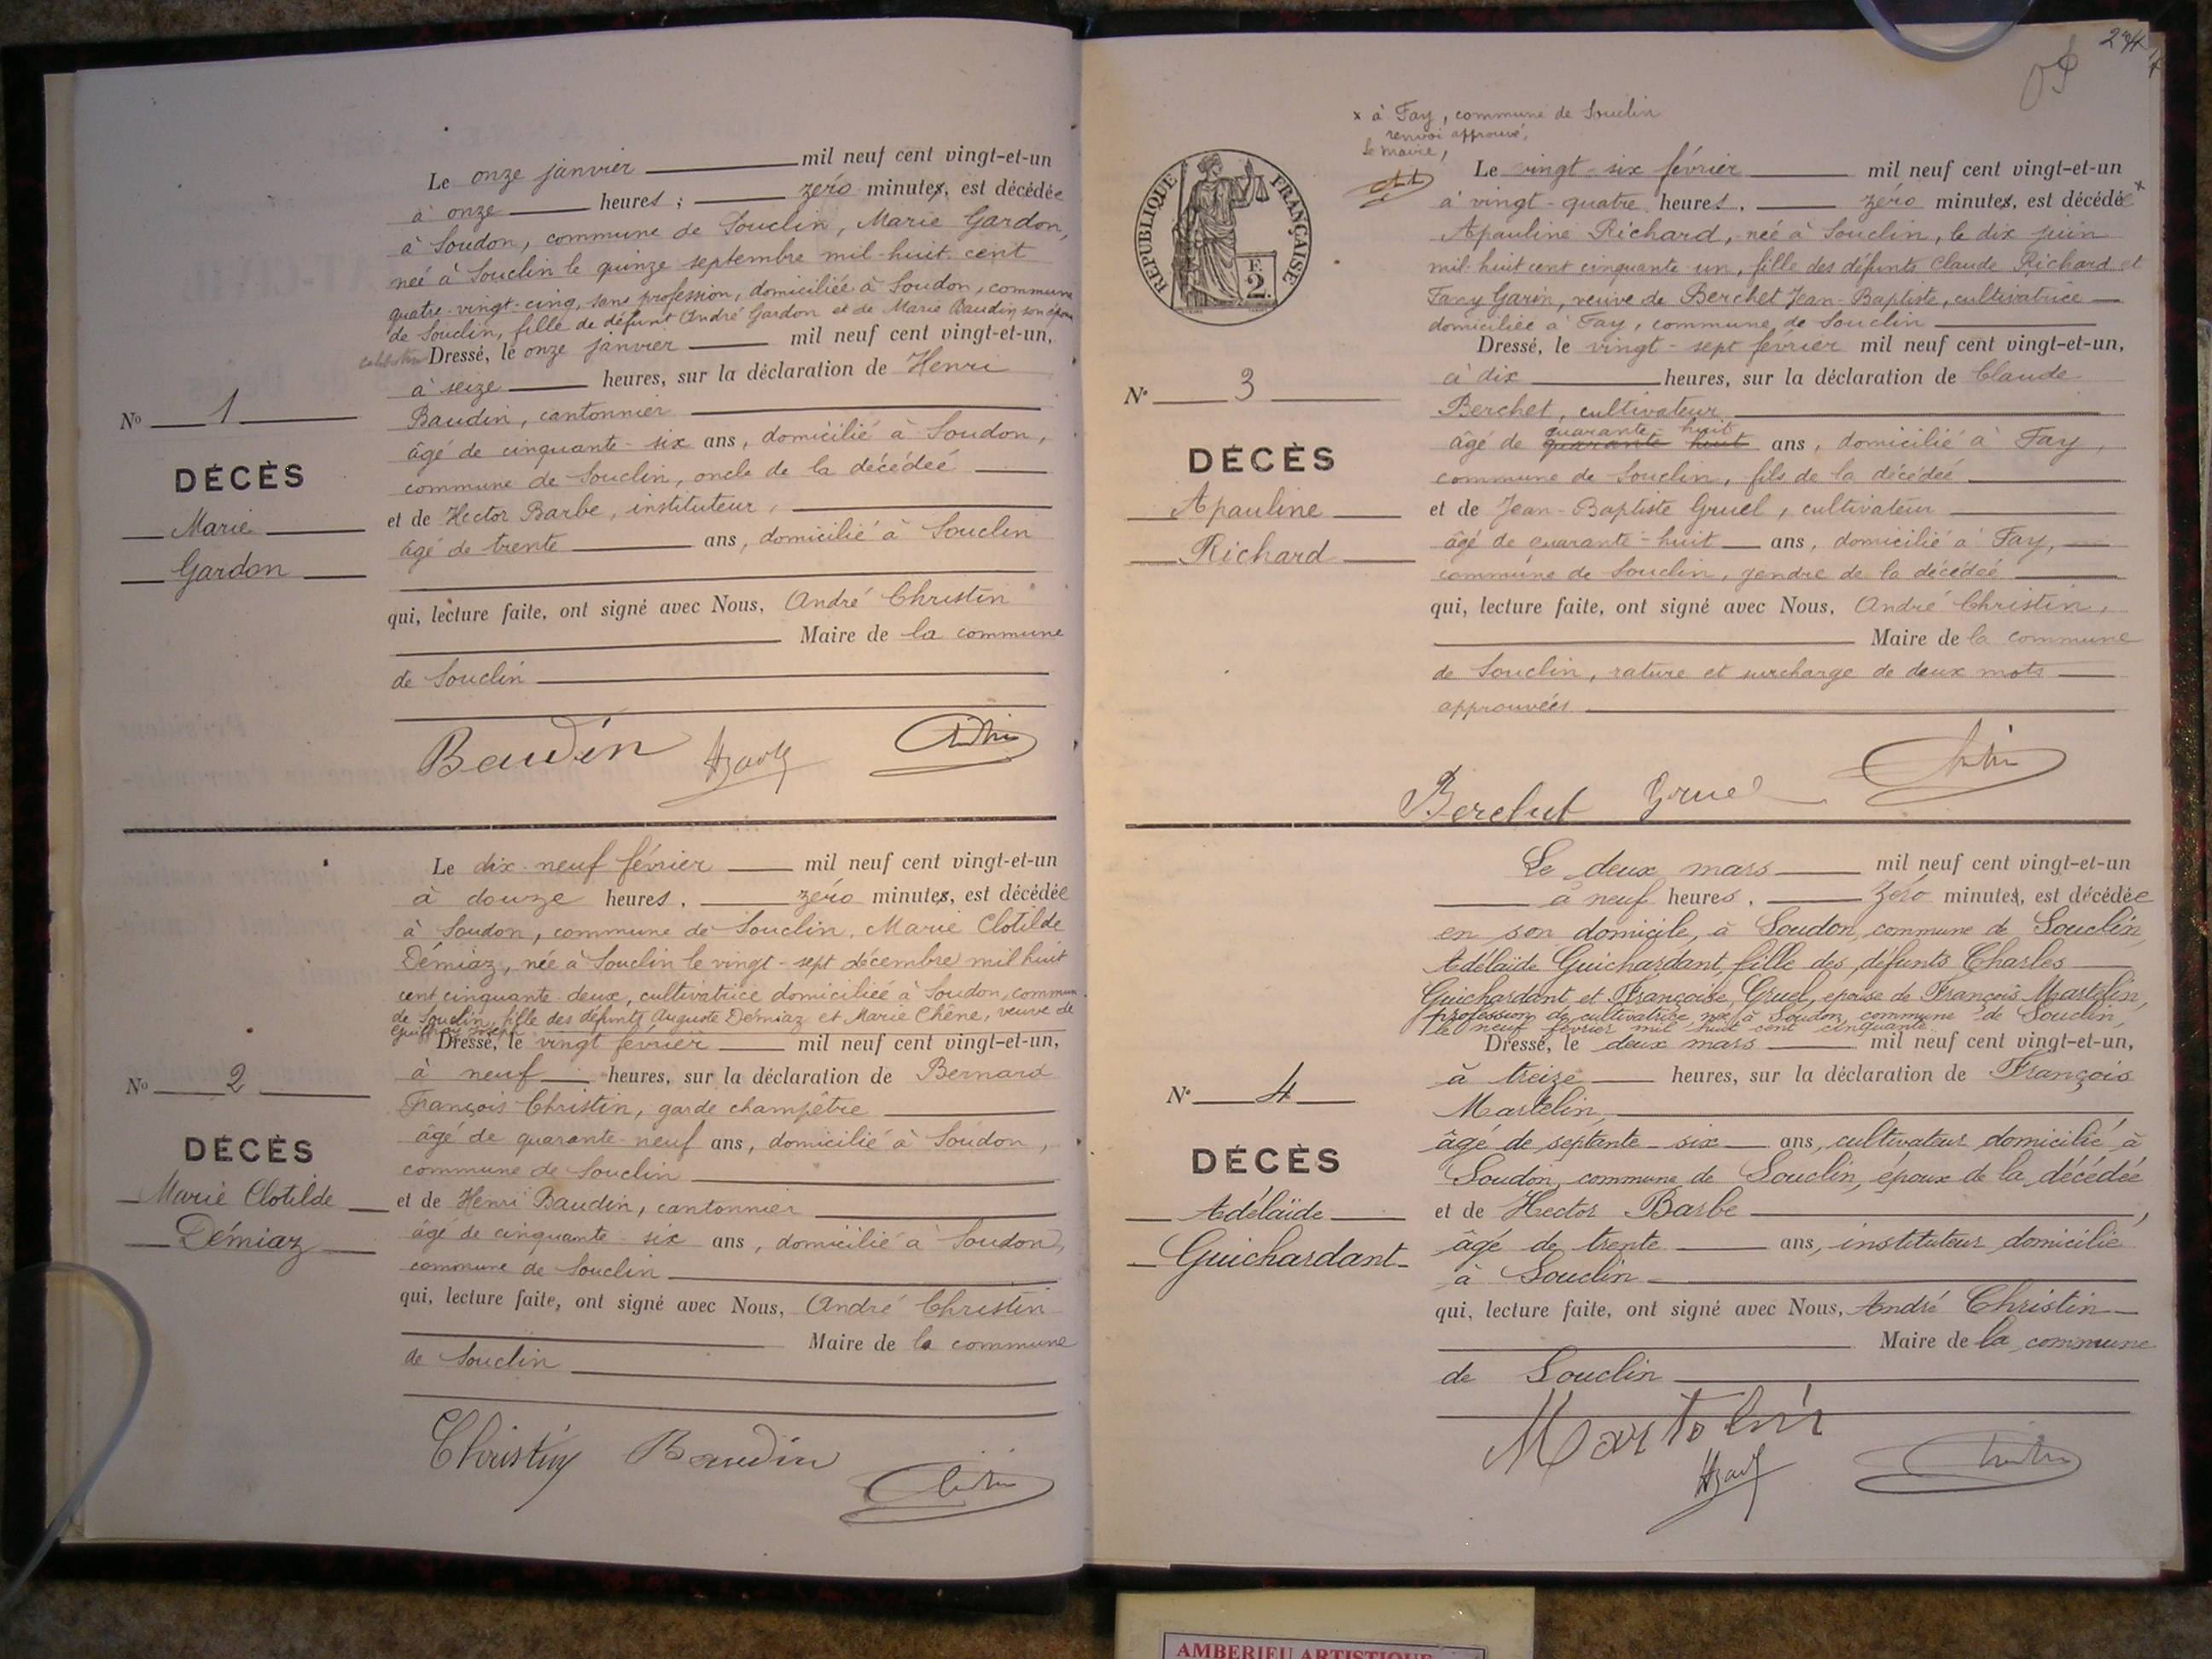 Le onze janvier mil neuf cent vingt-et-un
à onze heures ; zéro minutes, est décédée
à Soudon, commune de Souclin, Marie Gardon,
née à Souclin le quinze septembre mil-huit-cent
quatre-vingt-cinq, sans profession, domiciliée à Soudon, commune
de Souclin, fille de défunt André Gardon et de Marie Baudin son épouse
célibataire Dressé, le onze janvier mil neuf cent vingt-et-un,
à seize heures, sur la déclaration de Henri
Baudin, cantonnier
âgé de cinquante-six ans, domicilié à Soudon,
commune de Souclin, oncle de la décédée
et de Hector Barbe, instituteur,
âgé de trente ans, domicilié à Souclin
qui, lecture faite, ont signé avec Nous, André Christin
Maire de la commune
de Souclin
Baudin
No 1
DÉCÈS
Marie
Gardon
Le dix-neuf février mil neuf cent vingt-et-un
à douze heures, zéro minutes, est décédée
à Soudon, commune de Souclin, Marie Clotilde
Démiaz, née à Souclin le vingt-sept décembre mil huit
cent cinquante-deux, cultivatrice domiciliée à Soudon, commune
de Souclin, fille des défunts Auguste Démiaz et Marie Chêne, veuve de
Joseph
Dressé, le vingt février mil neuf cent vingt-et-un,
à neuf heures, sur la déclaration de Bernard
François Christin, garde champêtre
âgé de quarante-neuf ans, domicilié à Soudon,
commune de Souclin
et de Henri Baudin, cantonnier
âgé de cinquante-six ans, domicilié à Soudon,
commune de Souclin
qui, lecture faite, ont signé avec Nous, André Christin
Maire de la commune
de Souclin
Christin Baudin
No 2
DÉCÈS
Marie Clotilde
Démiaz
x à Fay, commune de Souclin
renvoi approuvé,
le maire,
REPUBLIQUE FRANÇAISE
F.
2
Le vingt-six février mil neuf cent vingt-et-un
à vingt-quatre heures, zéro minutes, est décédée x
Apauline Richard, née à Souclin, le dix juin
mil-huit cent cinquante-un, fille des défunts Claude Richard et
Fany Garin, veuve de Berchet Jean-Baptiste, cultivatrice
domiciliée à Fay, commune de Souclin
Dressé, le vingt-sept février mil neuf cent vingt-et-un,
à dix heures, sur la déclaration de Claude
Berchet, cultivateur
quarante-huit
âgé de quarante huit ans, domicilié à Fay,
commune de Souclin, fils de la décédée
et de Jean-Baptiste Gruel, cultivateur
âgé de quarante-huit ans, domicilié à Fay,
commune de Souclin, gendre de la décédée
qui, lecture faite, ont signé avec Nous, André Christin,
Maire de la commune
de Souclin, rature et surcharge de deux mots
approuvées
Berchet Gruel
No 3
DÉCÈS
Apauline
Richard
Le deux mars mil neuf cent vingt-et-un
à neuf heures, zéro minutes, est décédée
en son domicile, à Soudon, commune de Souclin,
Adélaïde Guichardant, fille des défunts Charles
Guichardant et Françoise Gruel, épouse de François Martelin,
profession de cultivatrice née à Soudon, commune de Souclin,
le neuf février mil huit cent cinquante
Dressé, le deux mars mil neuf cent vingt-et-un,
à treize heures, sur la déclaration de François
Martelin,
âgé de septante-six ans, cultivateur domicilié à
Soudon, commune de Souclin, époux de la décédée
et de Hector Barbe,
âgé de trente ans, instituteur domicilié
à Souclin
qui, lecture faite, ont signé avec Nous, André Christin
Maire de la commune
de Souclin
Martelin
No 4
DÉCÈS
Adélaïde
Guichardant
AMBERIEU ARTISTIQUE